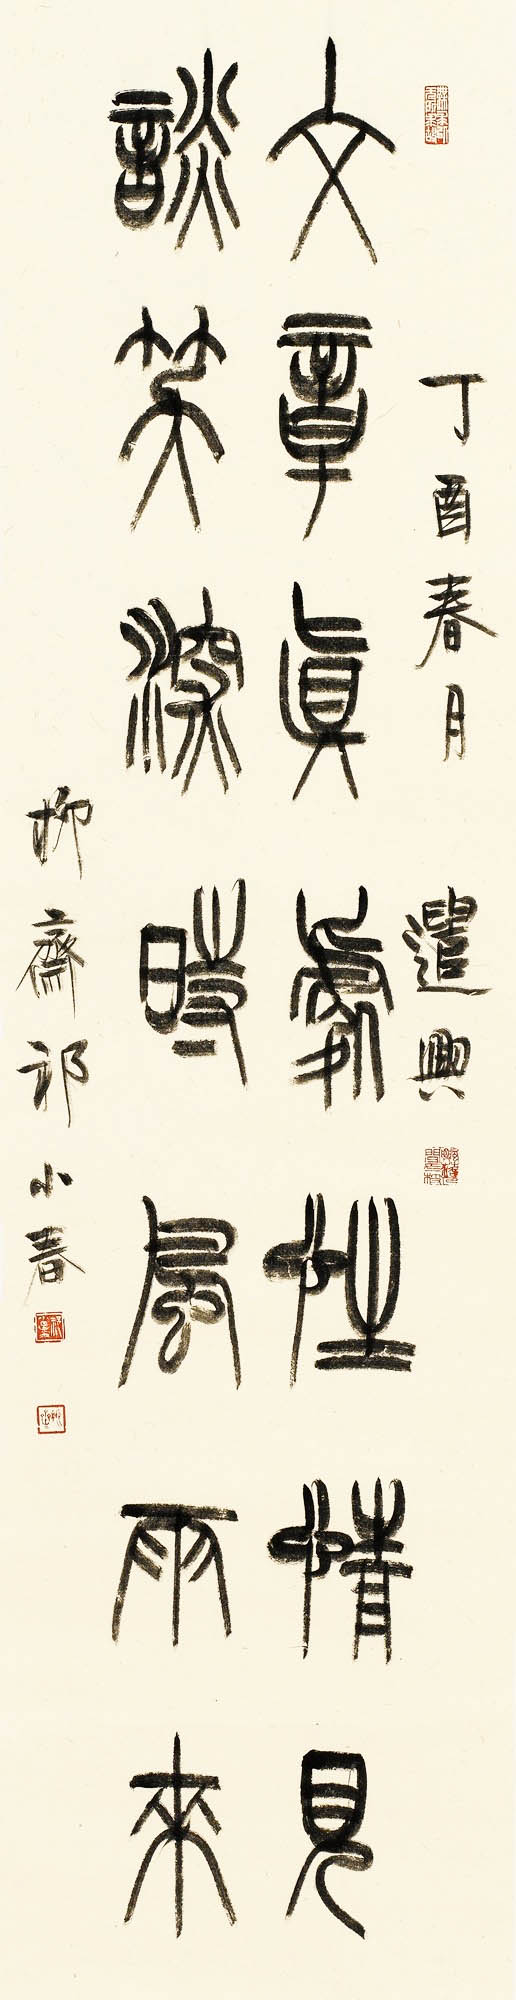 丁酉春月 遣興
文章真處性情見
談笑深時風雨來
柳齋祁小春